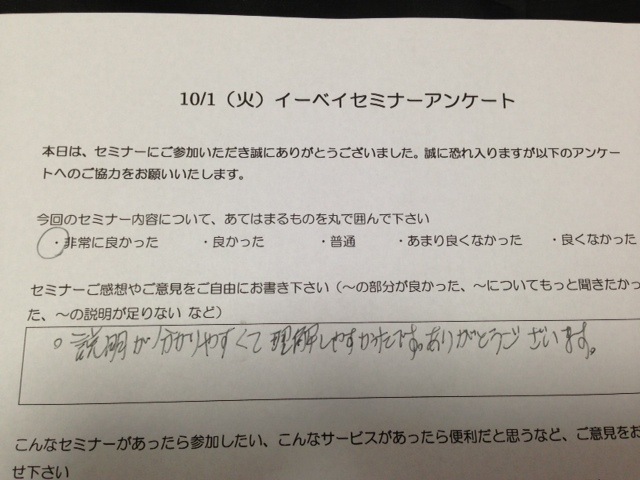 10/1（火）イーベイセミナーアンケート
本日は、セミナーにご参加いただき誠にありがとうございました。誠に恐れ入りますが以下のアンケー
トへのご協力をお願いいたします。
今回のセミナー内容について、あてはまるものを丸で囲んで下さい
・非常に良かった ・良かった ・普通 ・あまり良くなかった ・良くなかった
セミナーご感想やご意見をご自由にお書き下さい（～の部分が良かった、～についてもっと聞きたかっ
た、～の説明が足りない など）
○ 説明が分かりやすくて理解しやすかったです。ありがとうございます。
こんなセミナーがあったら参加したい、こんなサービスがあったら便利だと思うなど、ご意見をお
せ下さい